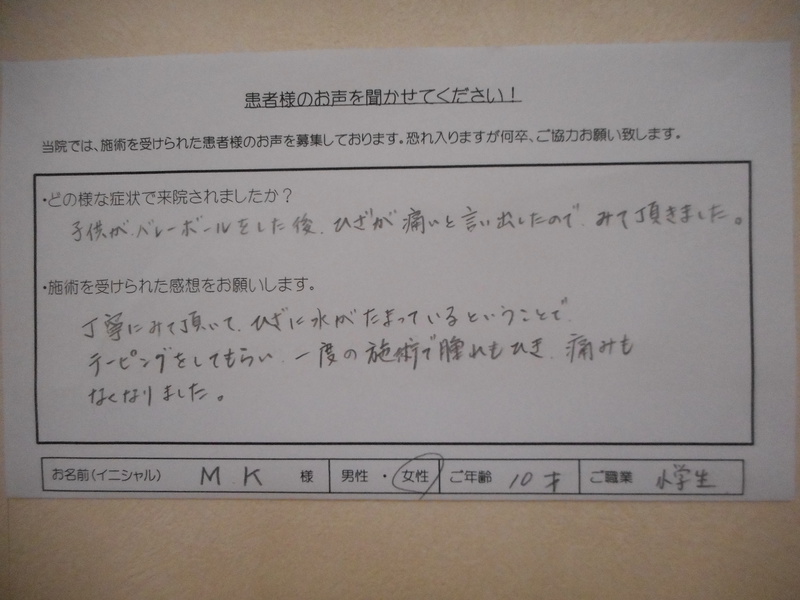 患者様のお声を聞かせてください！
当院では、施術を受けられた患者様のお声を募集しております。恐れ入りますが何卒、ご協力お願い致します。
・どの様な症状で来院されましたか？
子供が、バレーボールをした後、ひざが痛いと言い出したので、みて頂きました。
・施術を受けられた感想をお願いします。
丁寧にみて頂いて、ひざに水がたまっているということで、
テーピングをしてもらい、一度の施術で腫れもひき、痛みも
なくなりました。
お名前(イニシャル) M K 様 男性 ・ 女性 ご年齢 10才 ご職業 小学生